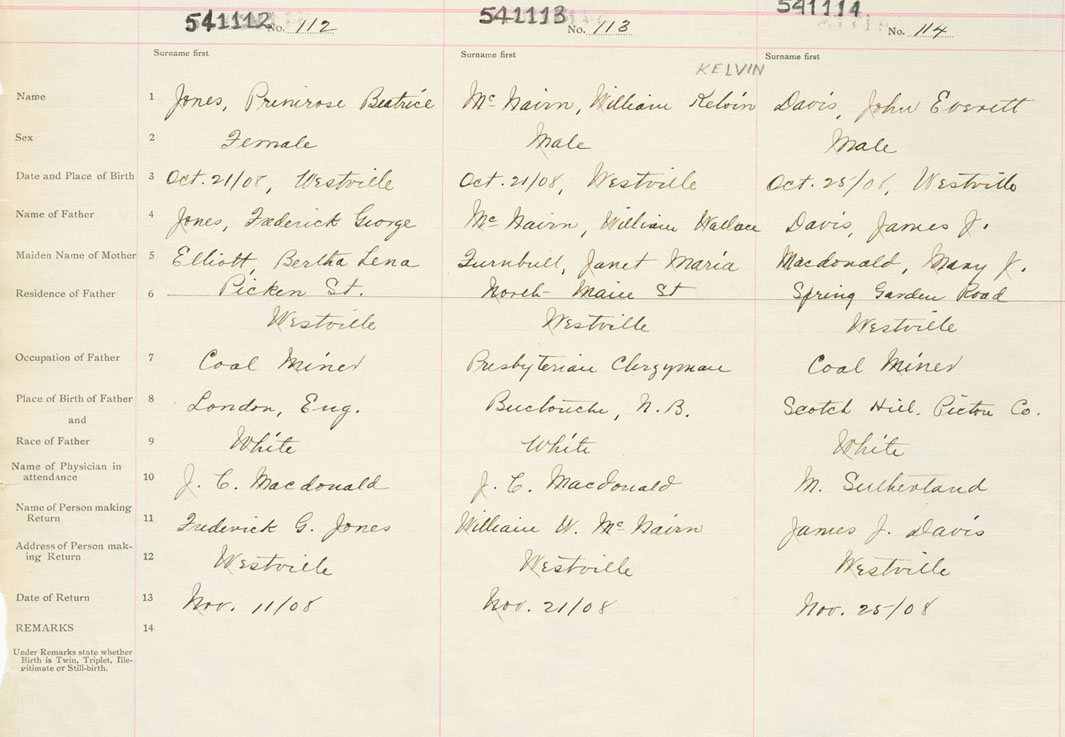 541112 No. 112 541113 No. 113 541114 No. 114
Surname first Surname first Surname first
KELVIN
Name 1 Jones, Primrose Beatrice Mc Nairn, William Kelvin Davis, John Everett
Sex 2 Female Male Male
Date and Place of Birth 3 Oct. 21/08, Westville Oct. 21/08, Westville Oct. 25/08, Westville
Name of Father 4 Jones, Frederick George Mc Nairn, William Wallace Davis, James J.
Maiden Name of Mother 5 Elliott, Bertha Lena Turnbull, Janet Maria Macdonald, Mary J.
Residence of Father 6 Picken St. North Main St Spring Garden Road
Westville Westville Westville
Occupation of Father 7 Coal Miner Presbyterian Clergyman Coal Miner
Place of Birth of Father 8 London, Eng. Buctouche, N.B. Scotch Hill. Pictou Co.
and
Race of Father 9 White White White
Name of Physician in
attendance 10 J. C. Macdonald J. C. Macdonald M. Sutherland
Name of Person making
Return 11 Frederick G. Jones William W. Mc Nairn James J. Davis
Address of Person mak-
ing Return 12 Westville Westville Westville
Date of Return 13 Nov. 11/08 Nov. 21/08 Nov. 25/08
REMARKS 14
Under Remarks state whether
Birth is Twin, Triplet, Ille-
gitimate or Still-birth.